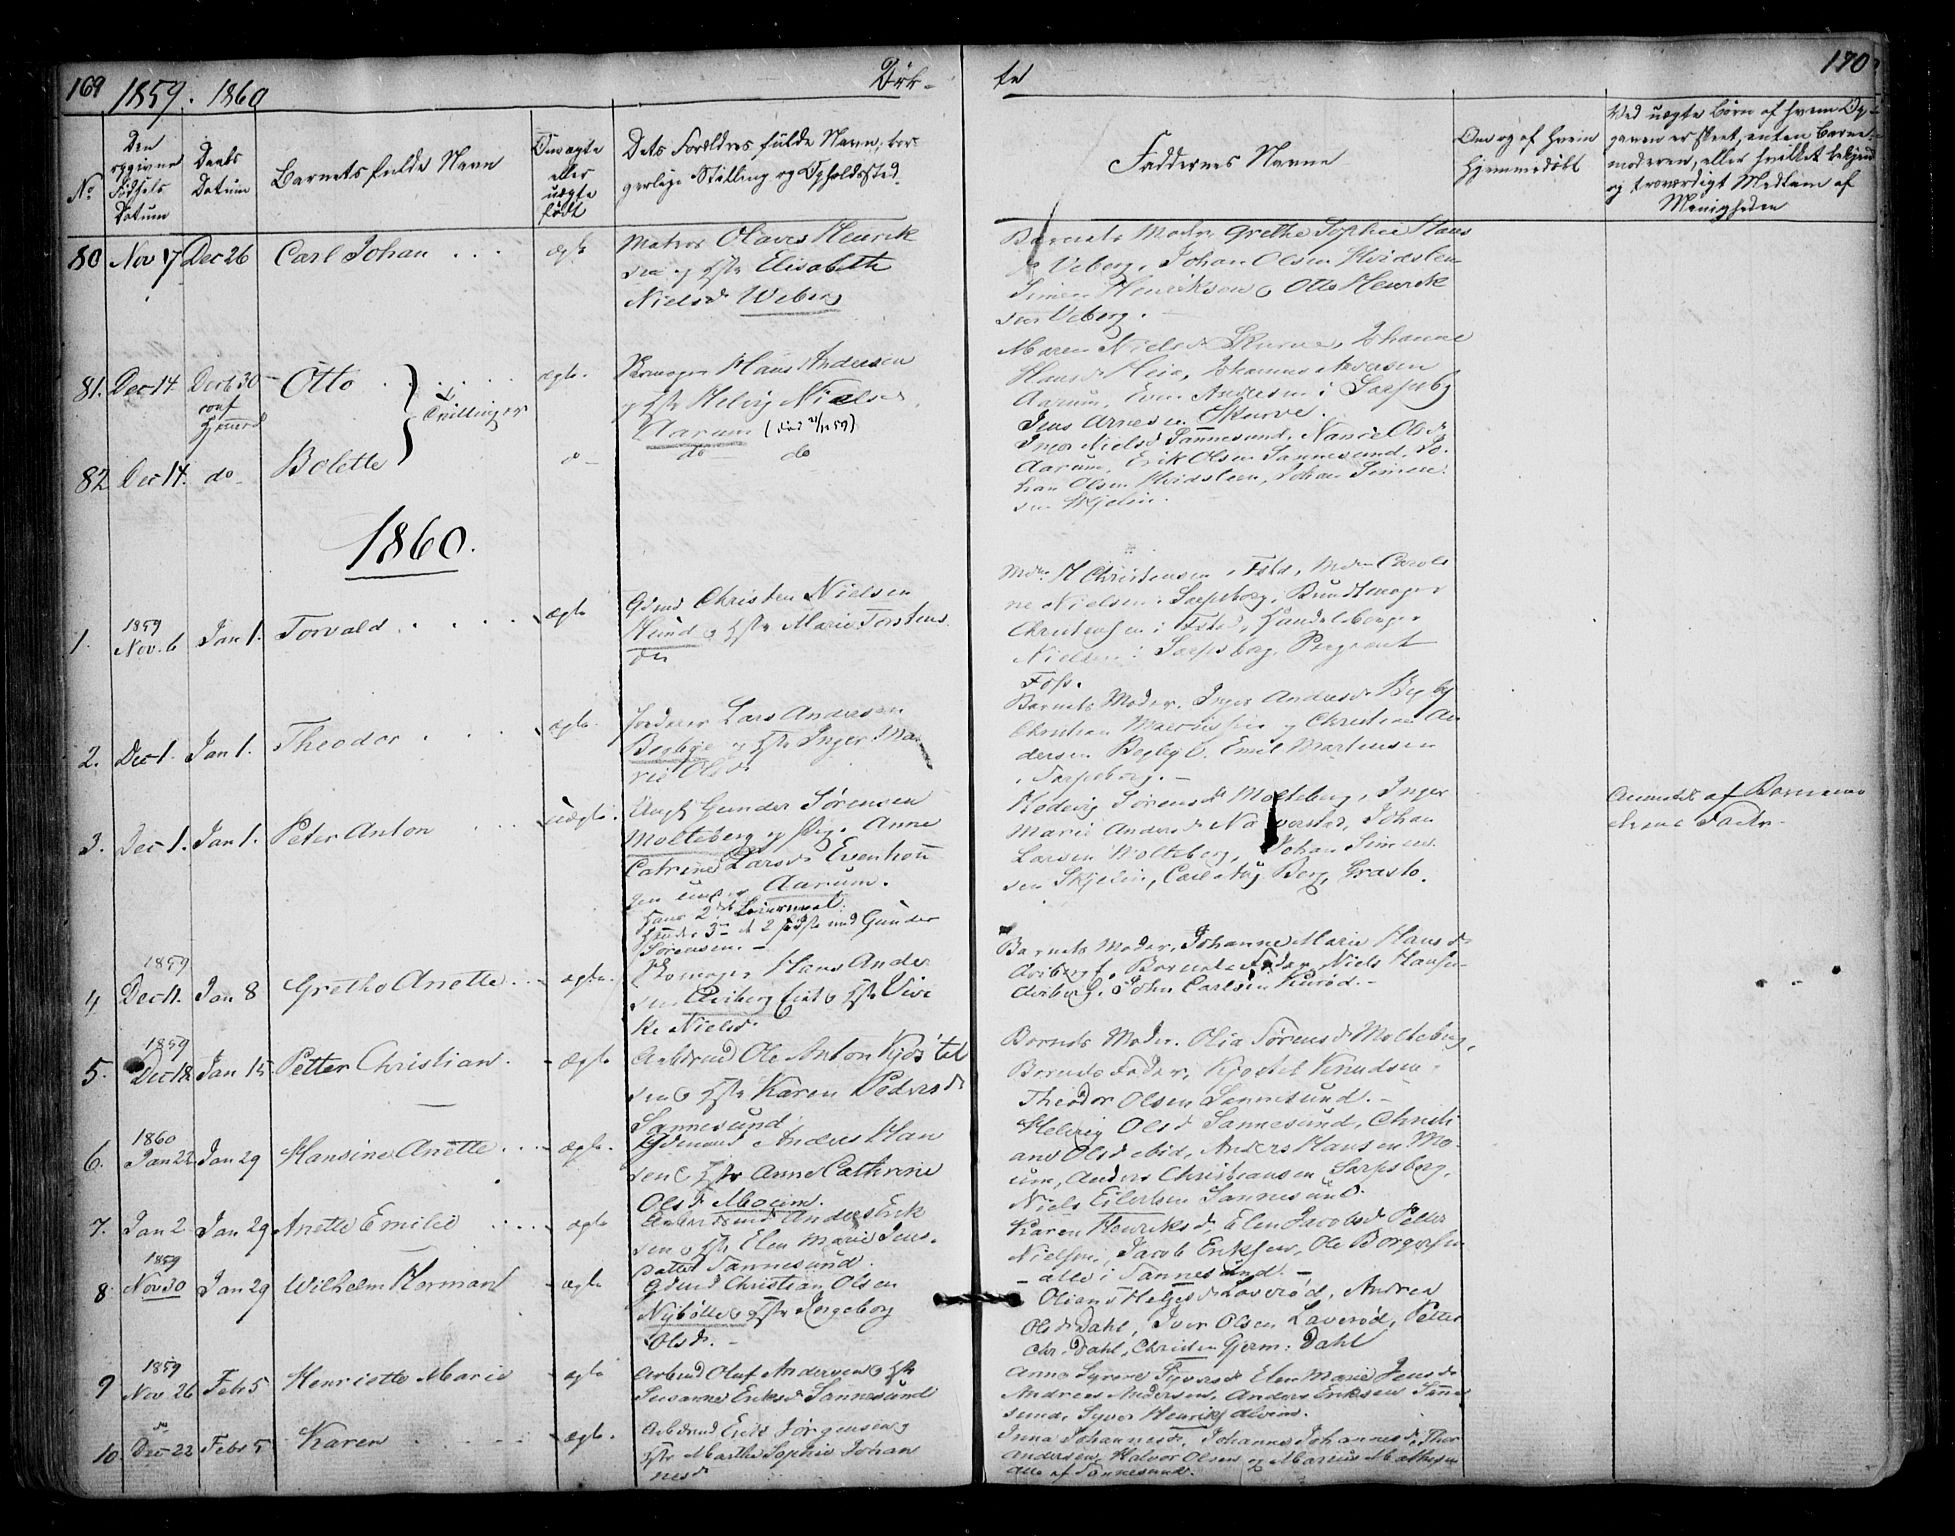 169
1859. 1860
Døb-
te
170
No
Den
opgivne
Fødsels
Datum
Daabs
Datum
Barnets fulde Navn
Om ægte
eller
uægte
født
Dets Forældres fulde Navn, bor-
gerlige Stilling og Opholdssted.
Faddernes Navne
Om og af hvem
hjemmedøbt
Ved uægte Børn af hvem Op-
gaven er skeet, enten Barne-
moderen, eller hvilket bekjendt
og troværdigt Medlem af
Menigheden
80 Nov 17 Dec 26 Carl Johan . . . ægte
Matros Olaves Henrik
sen og Hstr Elisabeth
Nielsd Weberg
Barnets Moder, Grethe Sophie Hans
d Veberg, Johan Olsen Hvidsten
Simen Henriksen, Otto Henrik
sen Veberg.
81. Dec 14 Decb 30 Otto . . . ægte.
conf
hjemmed
Trillinger
Skomager Hans Andersen
og Hstr Helvig Nielsd
Aarum (død 21/12 59)
Maren Nielsd Skurve, Johanne
Hansd Heie, Johannes Andersen
Aarum, Even Andersen i Sarpsbg
Jens Arnesen Skurve.
82 Dec 14. do Bolette do
do do
Inger Nielsd Sannesund, Nancie Olsd
Aarum, Erik Olsen Sannesund, Jo-
han Olsen Hvidsteen, Johan Simen
sen Skjelin.
1860.
1. 1859 Nov. 6 Jan 1. Torvald . . . . ægte
Gdmd Christen Nielsen
Hund og Hstr Marie Torstens
dtr
Mdm H Christensen i Fstd, Mdm Caroli
ne Nielsen i Sarpsborg, Bundtmager
Christensen i Fstd, Handelsborger
Nielsen i Sarpsborg, Procurent
Foss.
2. Dec 1. Jan 1. Theodor . . . ægte.
Lars Andersen
Begbye og Hstr Inger Ma
rie Olsd.
Barnets Moder, Inger Andersd Begby
Christian og Christian An
dersen Begby, Emil Martinsen
i Sarpsborg. -
3. Dec 1. Jan 1. Peter Anton . . . uægte.
Ungk Gunder Sørensen
Molteberg og Pig. Anne
Catrine Larsd Evenhou
gen under Aarum.
Hans 2det Leiermaal
Hendes 3die de 2 første med Gunder
Sørensen. -
Hedevig Sørensd Molteberg, Inger
Marie Andersd Navvestad, Johan
Larsen Molteberg, Johan Simen
sen Skjelin, Carl Aug Berg, Grasto.
Anmeldt af Barnemo
derens Fader
4 1859 Dec 11. Jan 8 Grethe Anette . . . ægte.
Skomager Hans Ander
sen og Hstr Vive
ke Nielsd
Barnets Moder, Johanne Marie Hansd
Barnets Fader, Niels Hansen
John Carlsen Kurød. -
5. 1859 Dec 18. Jan 15 Petter Christian. - ægte
Arbdmd Ole Anton Kjøstel
sen og Hstr Karen Pedersd
Sannesund
Barnets Moder. Olia Sørensd Molteberg,
Barnets Fader, Kjøstel Knudsen,
Theodor Olsen Sannesund. -
6. 1860 Jan 22 Jan 29 Hansine Anette . . . ægte.
Gdmand Anders Han
sen og Hstr Anne Cathrine
Olsd Moum.
Helvig Olsd Sannesund, Christi
ane Olsd ibid, Anders Hansen Mo-
um, Anders Christiansen Sarpsborg,
Niels Eilertsen Sannesund.
7. Jan 2 Jan 29 Anette Emilie . . . . ægte
Arbeidsmd Anders Erik
sen og Hstr Elen Marie Jens-
datter Sannesund.
Karen Henriksd, Elen Jacobsd Petter
Nielsen, Jacob Eriksen, Ole Borgersen
- alle i Sannesund. -
8. 1859 Nov 30 Jan 29 Wilhelm Herman - ægte
Gdmd Christian Olsen
Nybølle og Hstr Ingeborg
Olsd. -
Oliane Helgesd Laverød, Andrea
Olsd Dahl, Iver Olsen Laverød, Petter
Chr. Dahl, Christen Gjerm: Dahl
9 1859 Nov. 26 Feb 5 Henriette Marie - ægte
Arbmd Oluf Andersen og Hstr
Susanne Eriksd Sannesund
Anne Syvers Elen Marie Jensd
Andreas Andersen, Anders Eriksen Sanne
sund, Syver Henriks Alvim.
10. do Dec 22 Feb 5 Karen - ægte.
Arbdmd Erik Jørgensen og
Hstr Marthe Sophie Johan
nesd
Inna Johannesd, Johanne Johannesd, Thor
Andersen, Halvor Olsen og Marius Mathisen
alle af Sannesund.